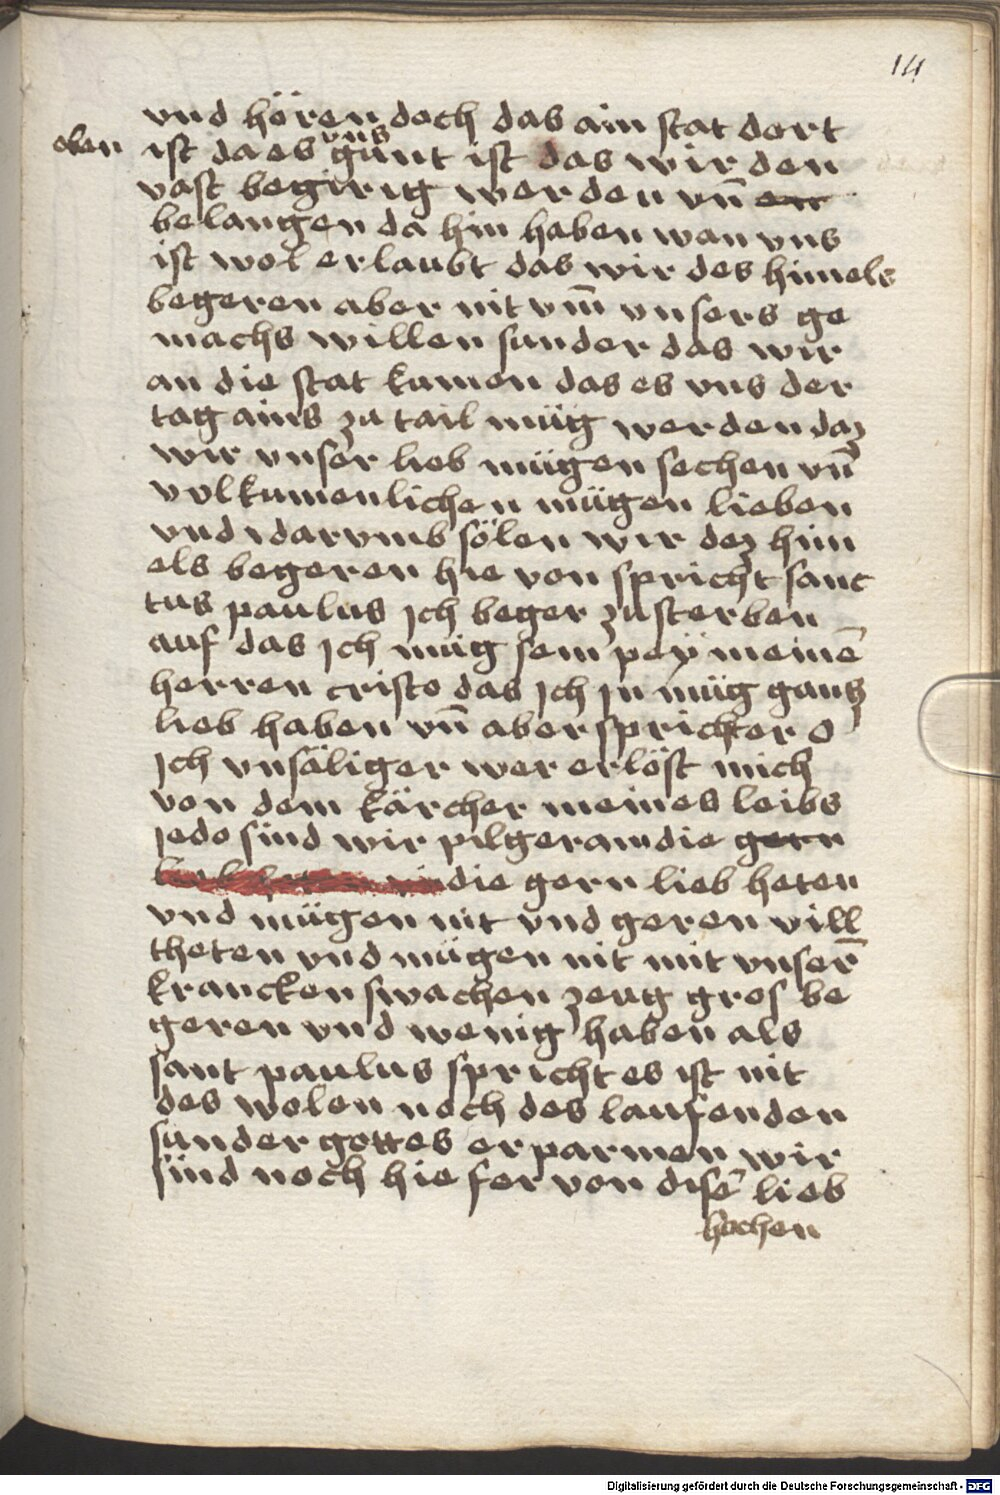 14
vnd hören doch das ain stat dort
oben ist da es vns günt ist das wir den
vast begirig werden vn̄ err
belangen da hin haben wan vns
ist wol erlaubt das wir des himels
begeren aber nit vm̄ vnsers ge
machs willen sunder das wir
an die stat kumen das es vns der
tag ains zu tail müg werden daz
wir vnser lieb mügen sechen vn̄
volkumenlichen mügen lieben
vnd darvmb sölen wir dez him
els begeren hie von spricht sanc
tus paulus jch beger zu sterben
auf das jch müg sein peÿ meinē
herren cristo das jch jn müg gantz
lieb haben vn̄ aber spricht er o
jch vnsäliger wer erlöst mich
von dem kärcher meines leibs
jedo sind wir pilgeram die gern
die gern lieb heten
vnd mügen nit vnd geren vill
theten vnd mügen nit mit vnser̄
krancken swachen zeug gros be
geren vnd wenig haben als
sant paulus spricht es ist nit
des wolen noch des laufenden
sunder gottes erparmen wir
sind noch hie fer von diser̄ lieb
hochen
Digitalisierung gefördert durch die Deutsche Forschungsgemeinschaft - DFG